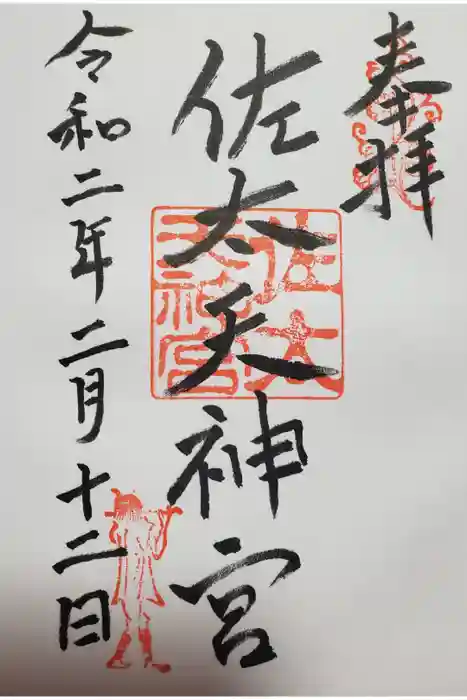 奉拝
佐太天神宮
佐太
天神宮
令和二年二月十二日